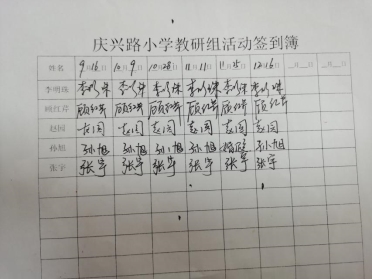 庆兴路小学教研组活动签到簿
姓名 9月16日 10月9日 10月28日 11月11日 11月25日 12月16日 __月__日 __月__日
李明珠 李明珠 李明珠 李明珠 李明珠 李明珠 李明珠
顾红芹 顾红芹 顾红芹 顾红芹 顾红芹 顾红芹 顾红芹
赵园 赵园 赵园 赵园 赵园 赵园 赵园
孙旭 孙旭 孙旭 孙旭 孙旭 孙旭
张宇 张宇 张宇 张宇 张宇 张宇 张宇